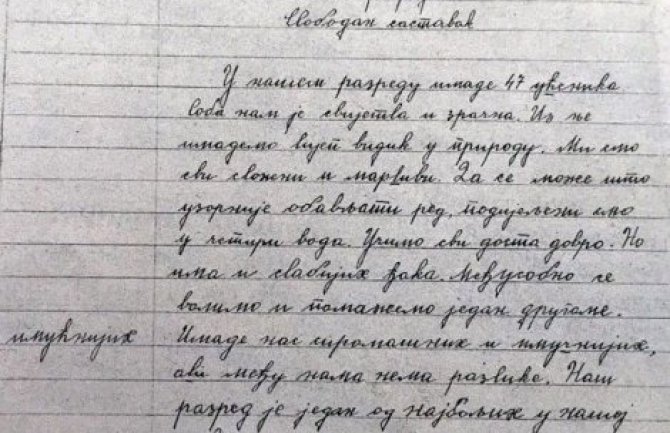 Слободан саставак
У нашем разреду имаде 47 ученика
Соба нам је свијетла и зрачна. Из ње
имадемо лијеп видик у природу. Ми смо
сви сложни и марљиви. Да се може што
узорније обављати ред, подијељени смо
у четири вода. Учимо сви доста добро. Но
има и слабијих ђака. Међусобно се
волимо и помажемо један другоме.
имућнијих
Имаде нас сиромашних и имучнијих,
али међу нама нема разлике. Наш
разред је један од најбољих у нашој